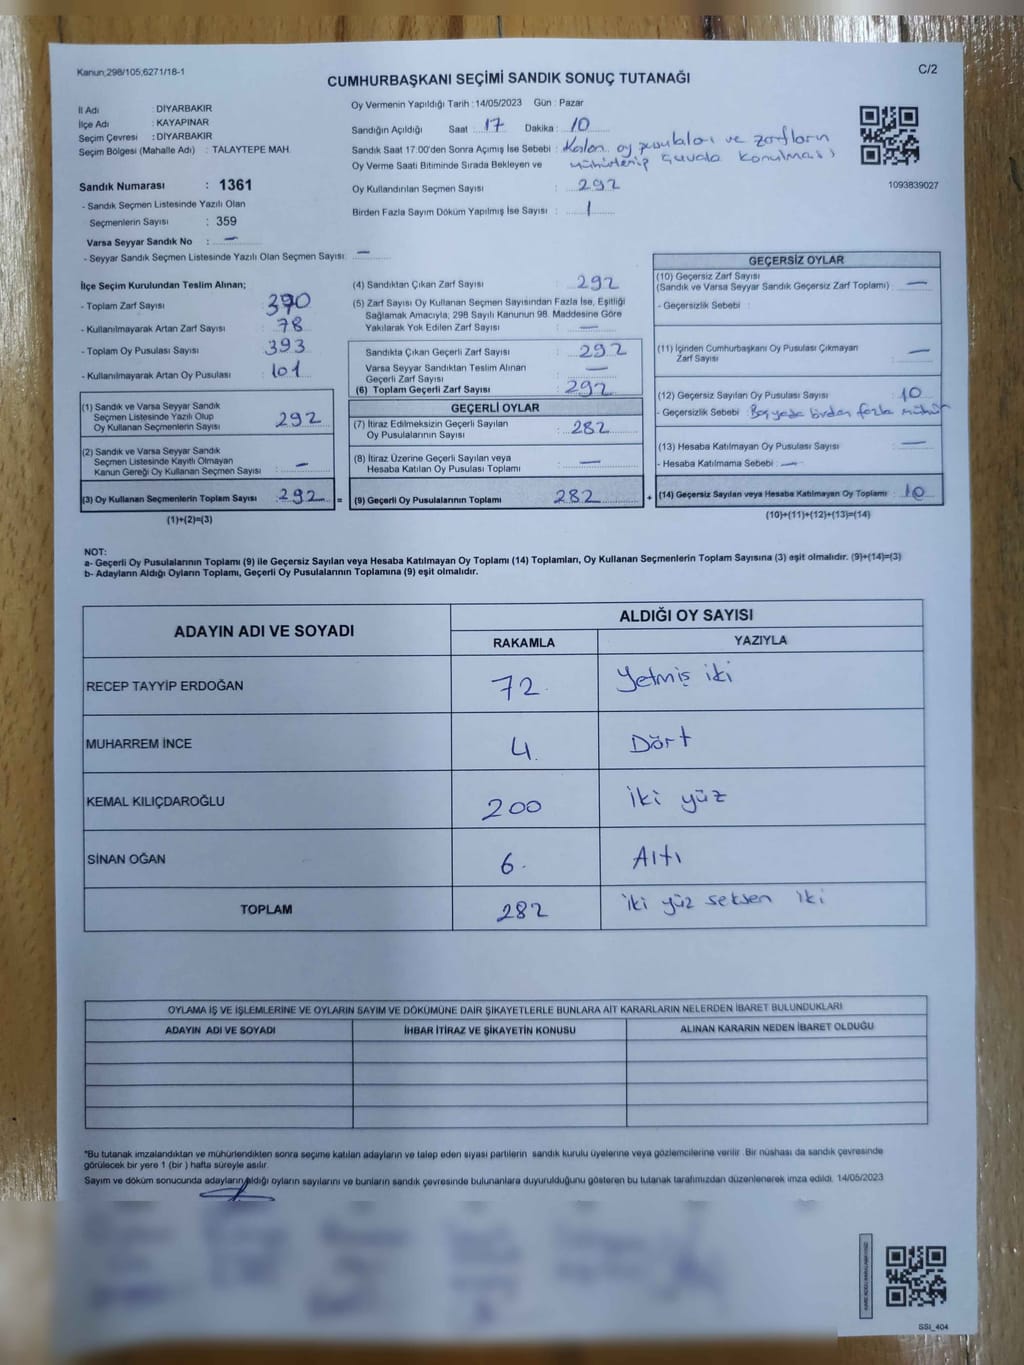 Kanun;298/105,6271/18-1
C/2
CUMHURBAŞKANI SEÇİMİ SANDIK SONUÇ TUTANAĞI
İl Adı : DİYARBAKIR
İlçe Adı : KAYAPINAR
Seçim Çevresi : DİYARBAKIR
Seçim Bölgesi (Mahalle Adı) : TALAYTEPE MAH.
Sandık Numarası : 1361
- Sandık Seçmen Listesinde Yazılı Olan
Seçmenlerin Sayısı : 359
Varsa Seyyar Sandık No : —
- Seyyar Sandık Seçmen Listesinde Yazılı Olan Seçmen Sayısı: —
Oy Vermenin Yapıldığı Tarih : 14/05/2023 Gün : Pazar
Sandığın Açıldığı Saat : 17 Dakika : 10
Sandık Saat 17:00'den Sonra Açımış İse Sebebi : Kalan oy pusulaları ve zarfların
Oy Verme Saati Bitiminde Sırada Bekleyen ve mühürlenip çuvala konulması
Oy Kullandırılan Seçmen Sayısı : 292
Birden Fazla Sayım Döküm Yapılmış İse Sayısı : 1
1093839027
İlçe Seçim Kurulundan Teslim Alınan;
- Toplam Zarf Sayısı : 390
- Kullanılmayarak Artan Zarf Sayısı : 78
- Toplam Oy Pusulası Sayısı : 393
- Kullanılmayarak Artan Oy Pusulası : 101
(1) Sandık ve Varsa Seyyar Sandık
Seçmen Listesinde Yazılı Olup
Oy Kullanan Seçmenlerin Sayısı : 292
(2) Sandık ve Varsa Seyyar Sandık
Seçmen Listesinde Kayıtlı Olmayan
Kanun Gereği Oy Kullanan Seçmen Sayısı : —
(3) Oy Kullanan Seçmenlerin Toplam Sayısı : 292 =
(1)+(2)=(3)
(4) Sandıktan Çıkan Zarf Sayısı : 292
(5) Zarf Sayısı Oy Kullanan Seçmen Sayısından Fazla İse, Eşitliği
Sağlamak Amacıyla; 298 Sayılı Kanunun 98. Maddesine Göre
Yakılarak Yok Edilen Zarf Sayısı : —
Sandıkta Çıkan Geçerli Zarf Sayısı : 292
Varsa Seyyar Sandıktan Teslim Alınan
Geçerli Zarf Sayısı : —
(6) Toplam Geçerli Zarf Sayısı : 292
GEÇERLİ OYLAR
(7) İtiraz Edilmeksizin Geçerli Sayılan
Oy Pusulalarının Sayısı : 282
(8) İtiraz Üzerine Geçerli Sayılan veya
Hesaba Katılan Oy Pusulası Toplamı : —
(9) Geçerli Oy Pusulalarının Toplamı : 282 +
GEÇERSİZ OYLAR
(10) Geçersiz Zarf Sayısı
(Sandık ve Varsa Seyyar Sandık Geçersiz Zarf Toplamı) : —
- Geçersizlik Sebebi :
(11) İçinden Cumhurbaşkanı Oy Pusulası Çıkmayan
Zarf Sayısı : —
(12) Geçersiz Sayılan Oy Pusulası Sayısı : 10
- Geçersizlik Sebebi : Boş yada birden fazla mühür
(13) Hesaba Katılmayan Oy Pusulası Sayısı : —
- Hesaba Katılmama Sebebi : —
(14) Geçersiz Sayılan veya Hesaba Katılmayan Oy Toplamı : 10
(10)+(11)+(12)+(13)=(14)
NOT:
a- Geçerli Oy Pusulalarının Toplamı (9) ile Geçersiz Sayılan veya Hesaba Katılmayan Oy Toplamı (14) Toplamları, Oy Kullanan Seçmenlerin Toplam Sayısına (3) eşit olmalıdır. (9)+(14)=(3)
b- Adayların Aldığı Oyların Toplamı, Geçerli Oy Pusulalarının Toplamına (9) eşit olmalıdır.
ADAYIN ADI VE SOYADI ALDIĞI OY SAYISI
RAKAMLA YAZIYLA
RECEP TAYYİP ERDOĞAN 72 Yetmiş iki
MUHARREM İNCE 4 Dört
KEMAL KILIÇDAROĞLU 200 iki yüz
SİNAN OĞAN 6 Altı
TOPLAM 282 iki yüz seksen iki
OYLAMA İŞ VE İŞLEMLERİNE VE OYLARIN SAYIM VE DÖKÜMÜNE DAİR ŞİKAYETLERLE BUNLARA AİT KARARLARIN NELERDEN İBARET BULUNDUKLARI
ADAYIN ADI VE SOYADI İHBAR İTİRAZ VE ŞİKAYETİN KONUSU ALINAN KARARIN NEDEN İBARET OLDUĞU
*Bu tutanak imzalandıktan ve mühürlendikten sonra seçime katılan adayların ve talep eden siyasi partilerin sandık kurulu üyelerine veya gözlemcilerine verilir. Bir nüshası da sandık çevresinde
görülecek bir yere 1 (bir ) hafta süreyle asılır.
Sayım ve döküm sonucunda adayların aldığı oyların sayılarını ve bunların sandık çevresinde bulunanlara duyurulduğunu gösteren bu tutanak tarafımızdan düzenlenerek imza edildi. 14/05/2023
SSI_404